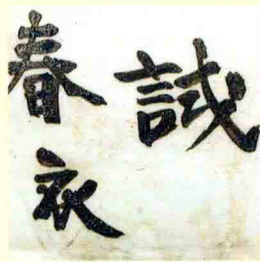 試
春衣